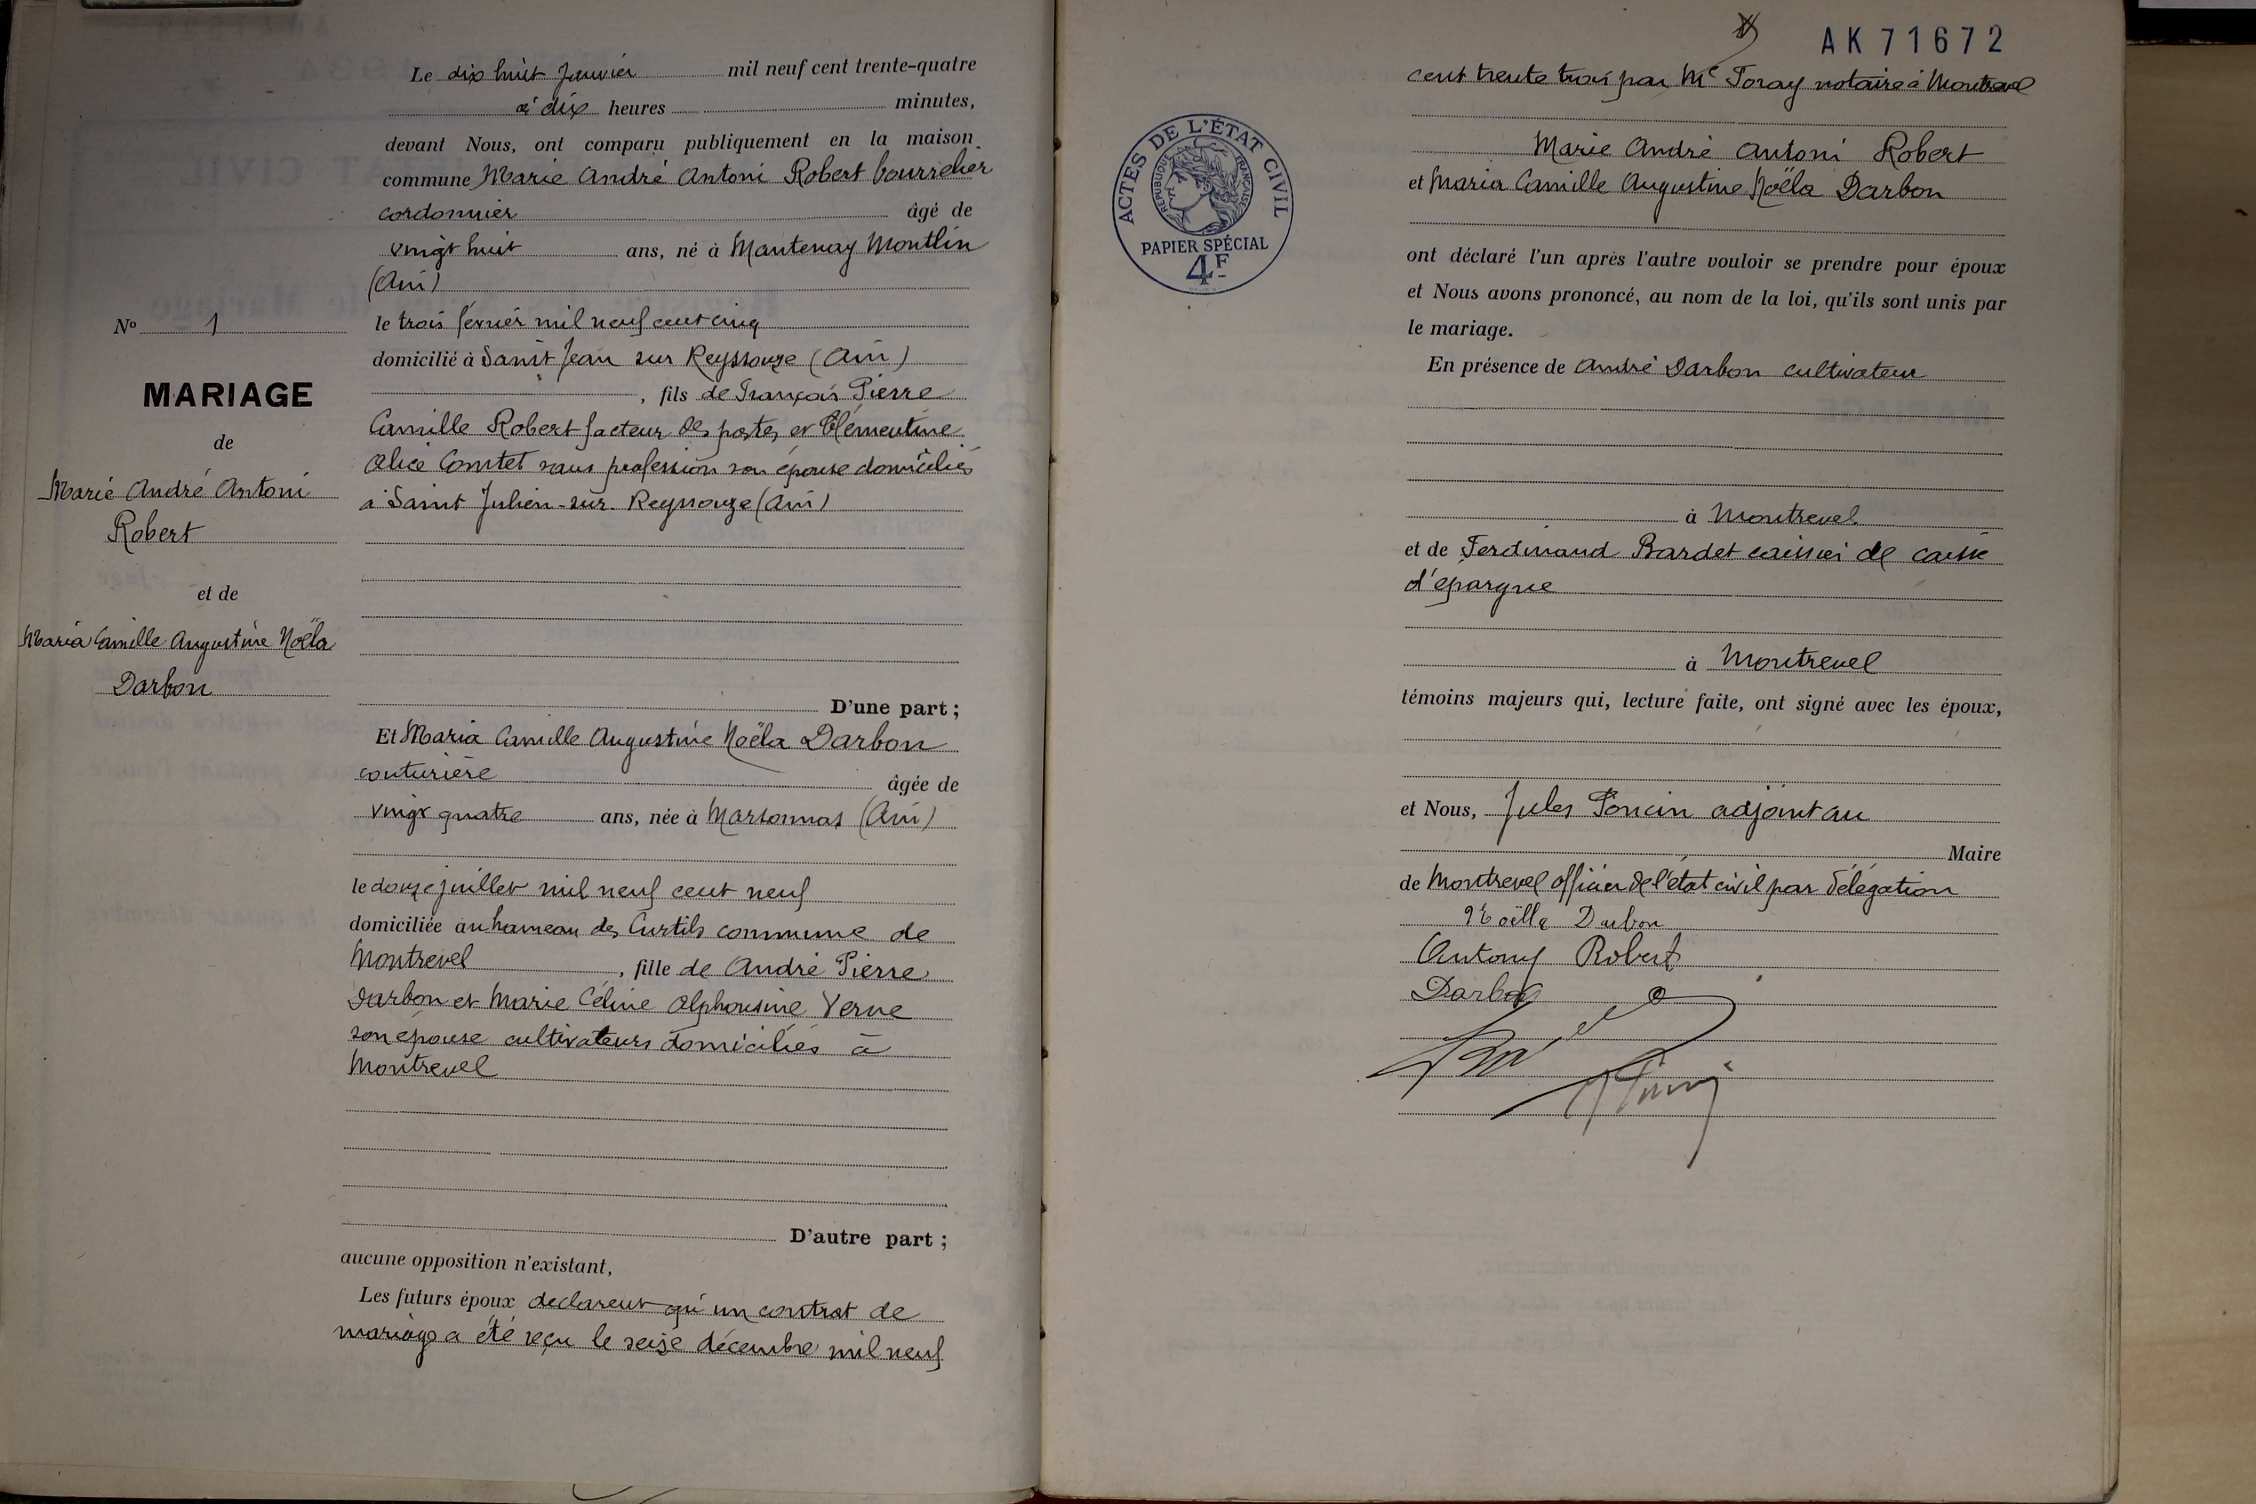 Le dix huit Janvier mil neuf cent trente-quatre
à dix heures minutes,
devant Nous, ont comparu publiquement en la maison
commune Marie André Antoni Robert bourrelier
cordonnier âgé de
vingt huit ans, né à Mantenay Montlin
(Ain)
le trois février mil neuf cent cinq
domicilié à Saint Jean sur Reyssouze (Ain)
, fils de François Pierre
Camille Robert facteur des postes et Clémentine
Alice Comtet sans profession son épouse domiciliés
à Saint Julien-sur-Reyssouze (Ain)
D'une part ;
Et Maria Camille Augustine Noëla Darbon
couturière âgée de
vingt quatre ans, née à Marsonnas (Ain)
le douze juillet mil neuf cent neuf
domiciliée au hameau des Curtils commune de
Montrevel, fille de André Pierre
Darbon et Marie Céline Alphonsine Verne
son épouse cultivateurs domiciliés à
Montrevel
D'autre part ;
aucune opposition n'existant,
Les futurs époux declarent qu'un contrat de
mariage a été reçu le seize décembre mil neuf
No 1
MARIAGE
de
Marie André Antoni
Robert
et de
Maria Camille Augustine Noëla
Darbon
AK 71672
cent trente trois par Me Foray notaire à Montrevel
Marie André Antoni Robert
et Maria Camille Augustine Noëla Darbon
ont déclaré l'un après l'autre vouloir se prendre pour époux
et Nous avons prononcé, au nom de la loi, qu'ils sont unis par
le mariage.
En présence de André Darbon cultivateur
à Montrevel
et de Ferdinand Bardet caissier de caisse
d'épargne
à Montrevel
témoins majeurs qui, lecture faite, ont signé avec les époux,
et Nous, Jules Poncin adjoint au
Maire
de Montrevel officier de l'état civil par délégation
Noëlla Darbon
Antony Robert
Darbon
ACTES DE L'ÉTAT CIVIL
RÉPUBLIQUE FRANÇAISE
PAPIER SPÉCIAL
4F